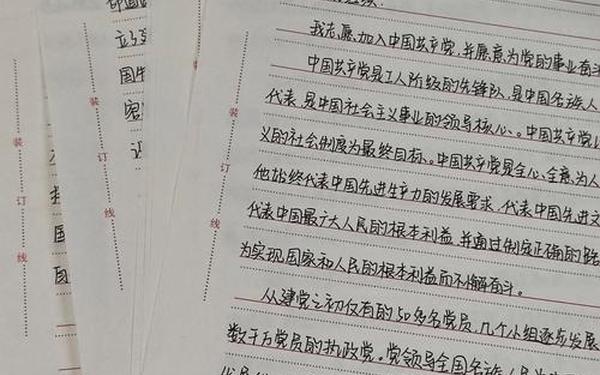 我志愿加入中国共产党,并愿意为党的事业奋斗
中国共产党是工人阶级的先锋队,是中国各族人
代表,是中国社会主义事业的领导核心。中国共产党以
义的社会制度为最终目标。中国共产党是全心、全意、为人
他始终代表中国先进生产力的发展要求,代表中国先进文
代表中国最广大人民的根本利益,并通过制定正确的路
为实现国家和人民的根本利益而不懈奋斗。
从建党之初仅有的50多名党员,几个小组逐步发展
数千万党员的执政党。党领导全国各族人民为
装
订
线
装
订
线
装
订
线
立
国
国
自